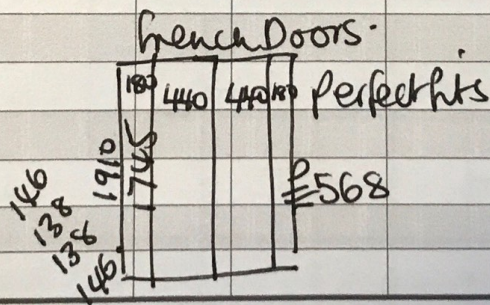 French Doors.
180 440 440 180 Perfect fits
1910 1745
568
146
138
138
146